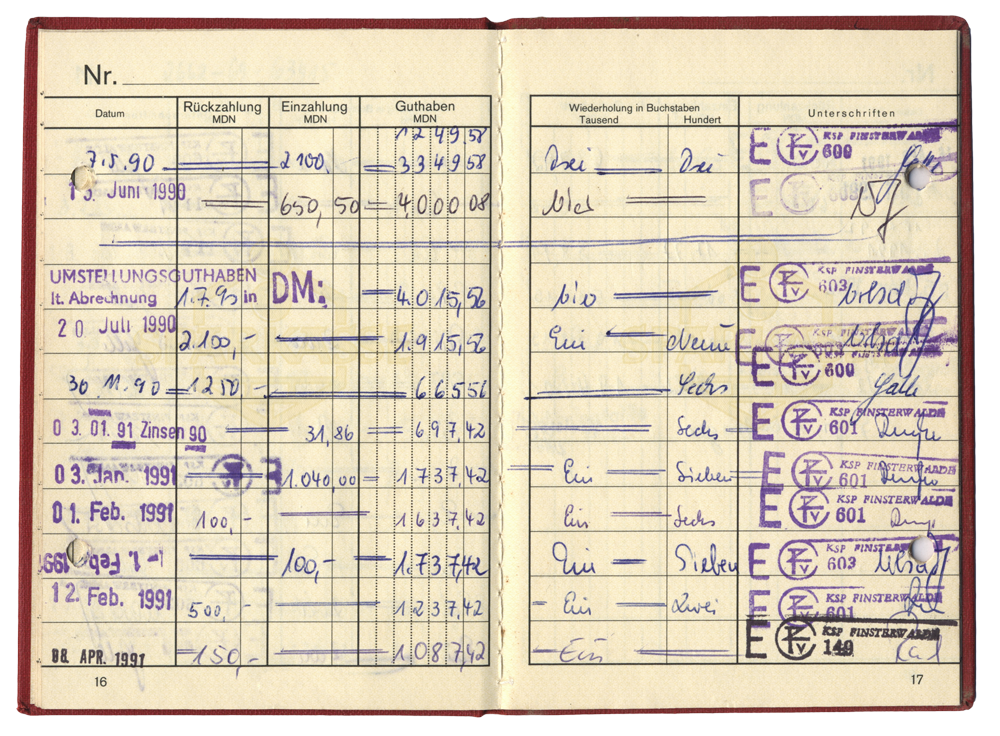 Nr.
Datum Rückzahlung MDN Einzahlung MDN Guthaben MDN Wiederholung in Buchstaben Tausend Hundert Unterschriften
1249,58
7.5.90 2100, 334958 Drei Drei E KSP FINSTERWALDE 600
13. Juni 1990 650,50 4000 08 vier E
UMSTELLUNGSGUTHABEN
lt. Abrechnung 1.7.90 in DM: 4.015,56 vier E KSP FINSTERWALDE 603
20 Juli 1990 2.100,- 1.915,56 Ein Neun E KSP FINSTERWALDE 603
30 11.90 1250,- 66556 Sechs E 600
03.01.91 Zinsen 90 31,86 697,42 Sechs E KSP FINSTERWALDE 601
03. Jan. 1991 E 1.040,00 1737,42 Ein Sieben E KSP FINSTERWALDE 601
01. Feb. 1991 100,- 1637,42 Ein Sechs E KSP FINSTERWALDE 601
1-1. Feb. 1991 100,- 1.737,42 Ein Sieben E KSP FINSTERWALDE 603
12. Feb. 1991 500,- 1237,42 Ein Zwei E KSP FINSTERWALDE 601
08. APR. 1991 150,- 1087,42 Ein E KSP FINSTERWALDE 149
16
17